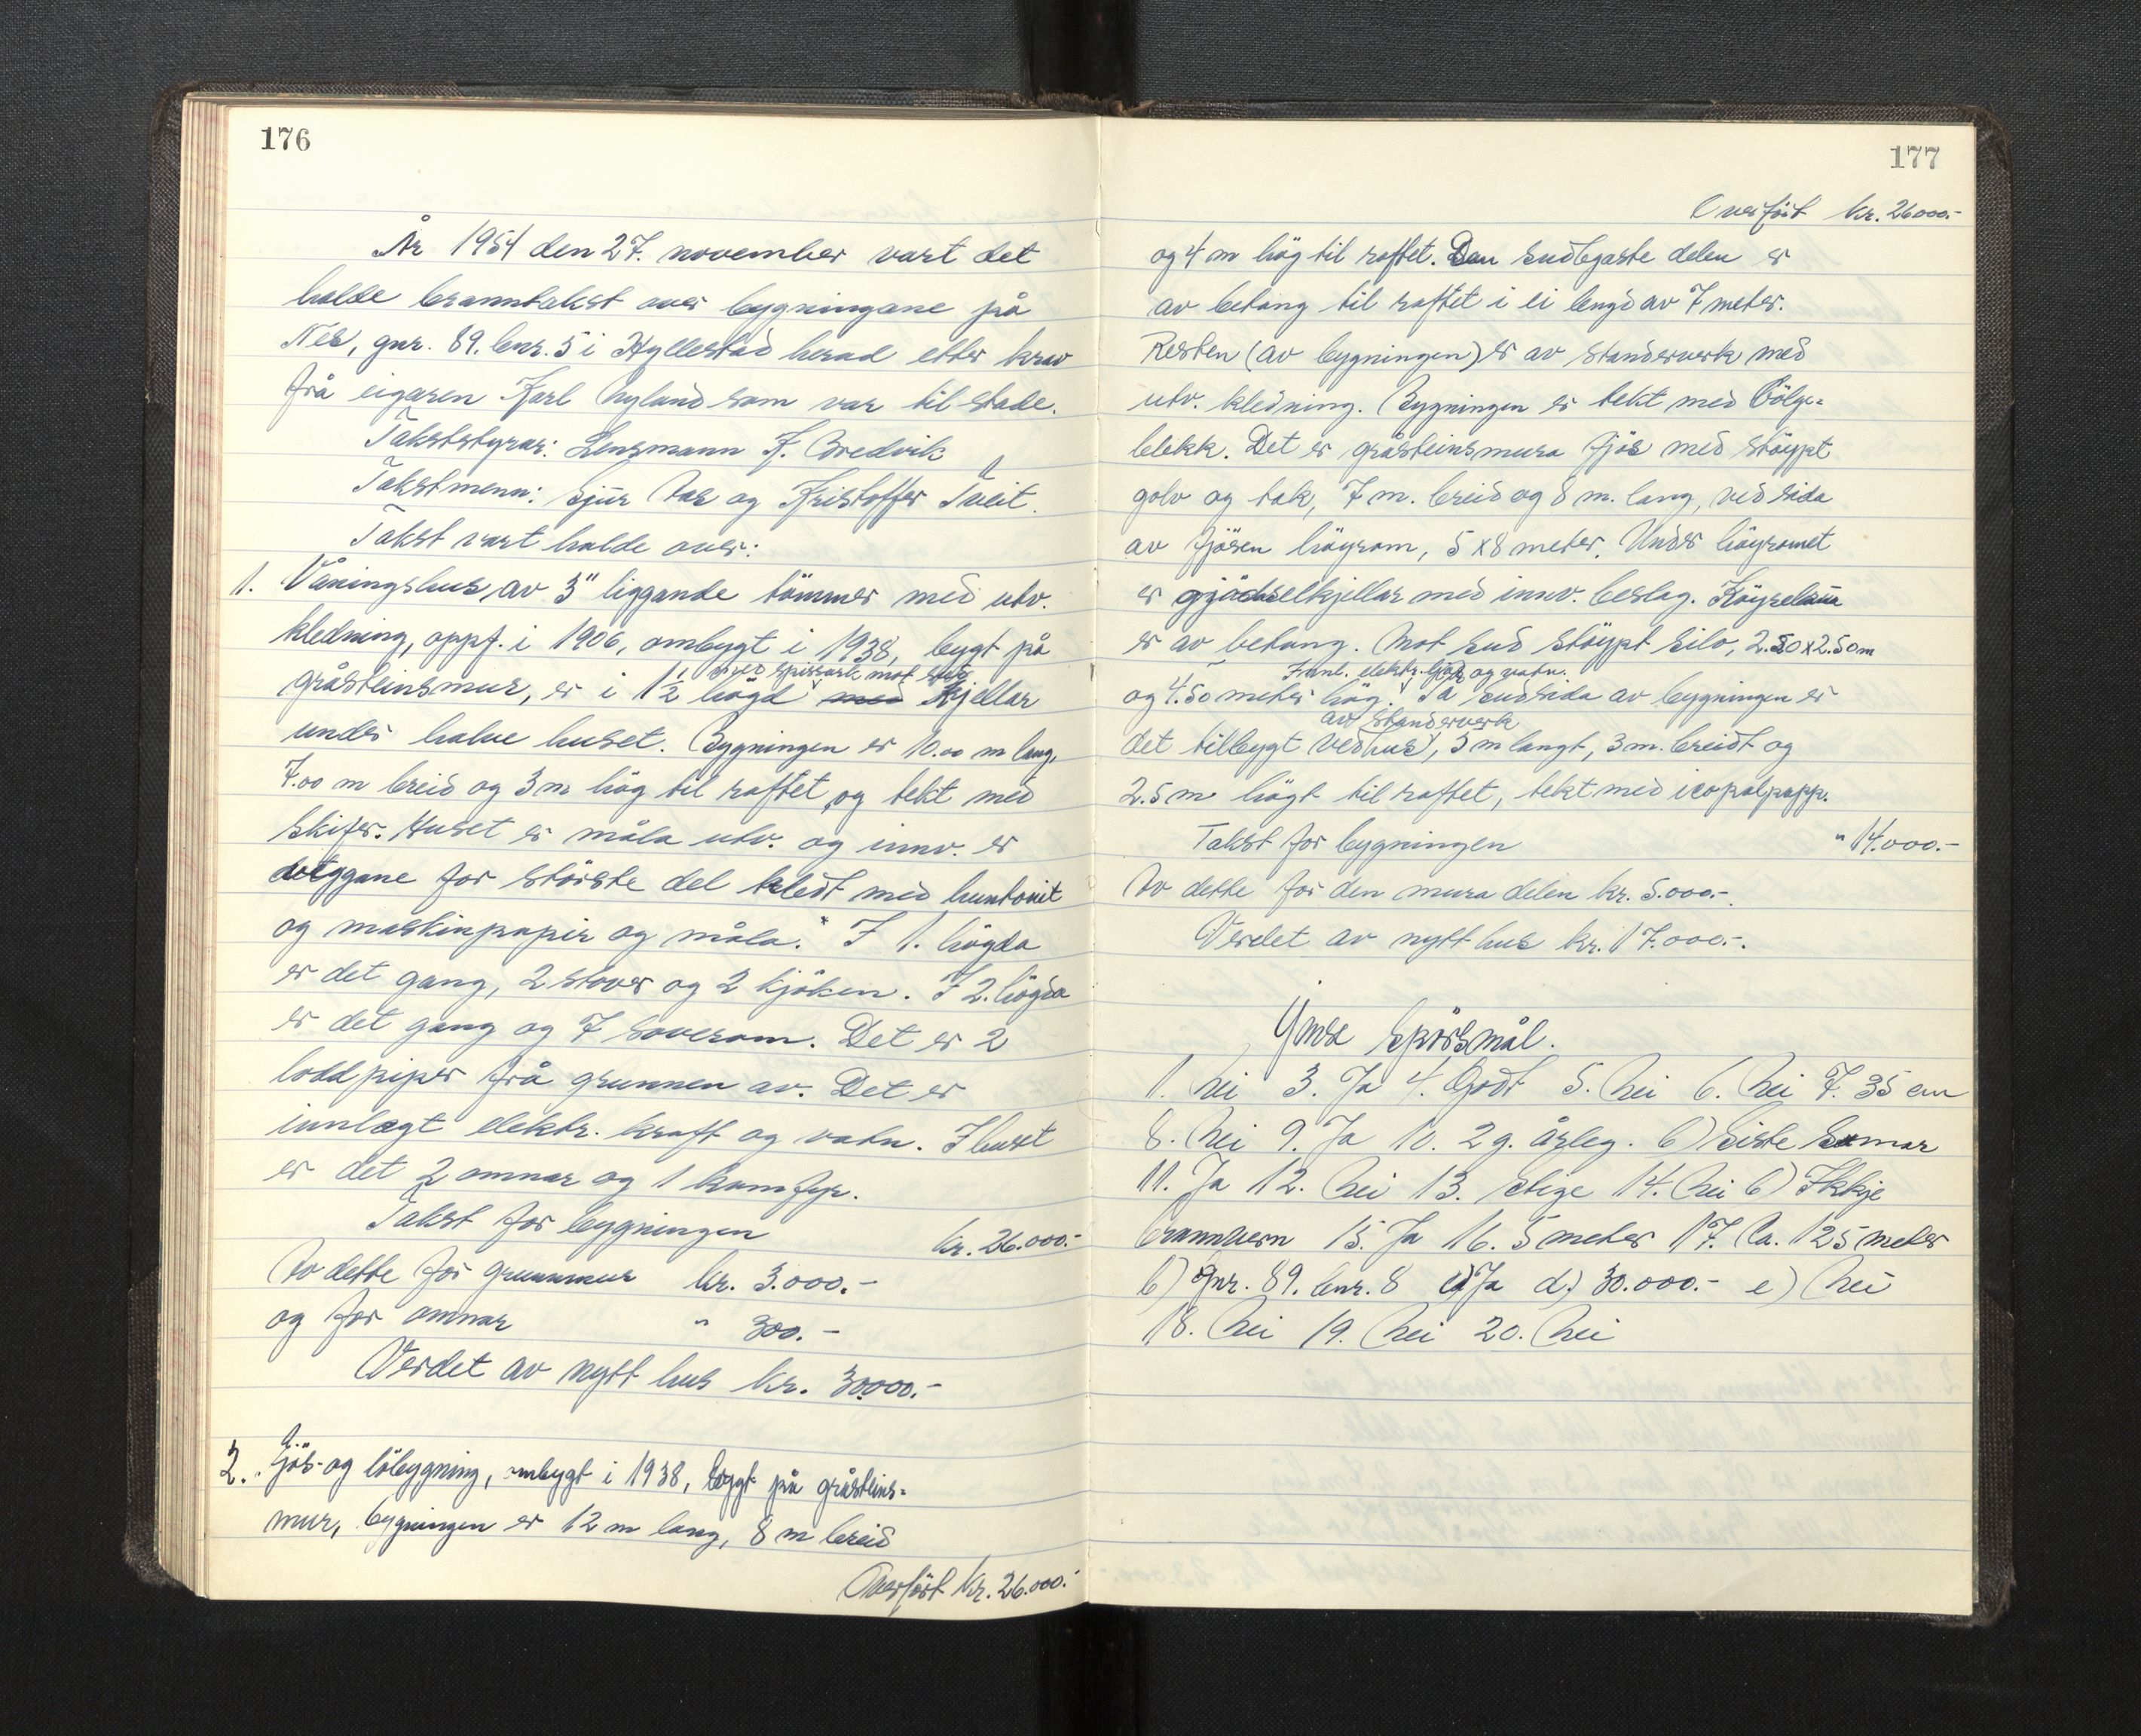 176
År 1954 den 27. november vart det
halde branntakst over bygningane på
Nes, gnr. 89. bnr. 5 i Hyllestad herad etter krav
frå eigaren Karl Nyland som var til stade.
Takststyrar: Lensmann F. Bredvik
Takstmenn: Sjur Aas og Kristoffer Tveit.
Takst vart halde over:
1. Våningshus, av 3" liggande tömmer med utv.
kledning, oppf. i 1906, ombygt i 1938, bygt på
med spissark mot sud
gråsteinsmur, er i 1½ högd med Kjellar
under halve huset. Bygningen er 10.00 m lang,
7.00 m breid og 3 m hög til raftet og tekt med
skifer. Huset er måla utv. og innv. er
veggane for störste del kledt med huntonit
og maskinpapir og måla. I 1. högda
er det gang, 2 stover og 2 kjöken. I 2. högda
er det gang og 7 soverom. Det er 2
loddpiper frå grunnen av. Det er
innlagt elektr. kraft og vatn. I huset
er det 2 omnar og 1 komfyr.
Takst for bygningen kr. 26.000.-
Av dette for grunnmur kr. 3.000.-
og for omnar " 300.-
Verdet av nytt hus kr. 30.000.-
2. Fjös- og löbygning, ombygt i 1938, bygt på gråsteins-
mur, bygningen er 12 m lang, 8 m breid
Overfört kr. 26.000.-
177
Overfört kr. 26000.-
og 4 m hög til raftet. Den sudlegaste delen er
av betong til raftet i ei lengd av 7 meter.
Resten (av bygningen) er av standerverk med
utv. kledning. Bygningen er tekt med bölge-
blekk. Det er gråsteinsmura fjös med stöypt
golv og tak, 7 m. breid og 8 m. lang, ved sida
av fjösen höyrom, 5 x 8 meter. Under höyromet
er gjödselkjellar med innv. beslag. Köyrebrua
er av betong. Mot sud stöypt silo, 2.50 x 2.50 m
Innl. elektr. ljos og vatn.
og 4.50 meter hög. På sudsida av bygningen er
av standerverk
det tilbygt vedhus, 5 m langt, 3 m. breidt og
2.5 m högt til raftet, tekt med icopalpapp.
Takst for bygningen " 14.000.-
Av dette for den mura delen kr. 5.000.-
Verdet av nytt hus kr. 17.000.-.
Ymse spörsmål.
1. Nei 3. Ja 4. Godt 5. Nei 6. Nei 7. 35 cm
8. Nei 9. Ja 10. 2 g. årleg. b) Siste Sumar
11. Ja 12. Nei 13. Stige 14. Nei b) Ikkje
brannvern 15. Ja 16. 5 meter 17. Ca. 125 meter
b) Gnr. 89. bnr. 8 c) Ja d.) 30.000.- e) Nei
18. Nei 19. Nei 20. Nei